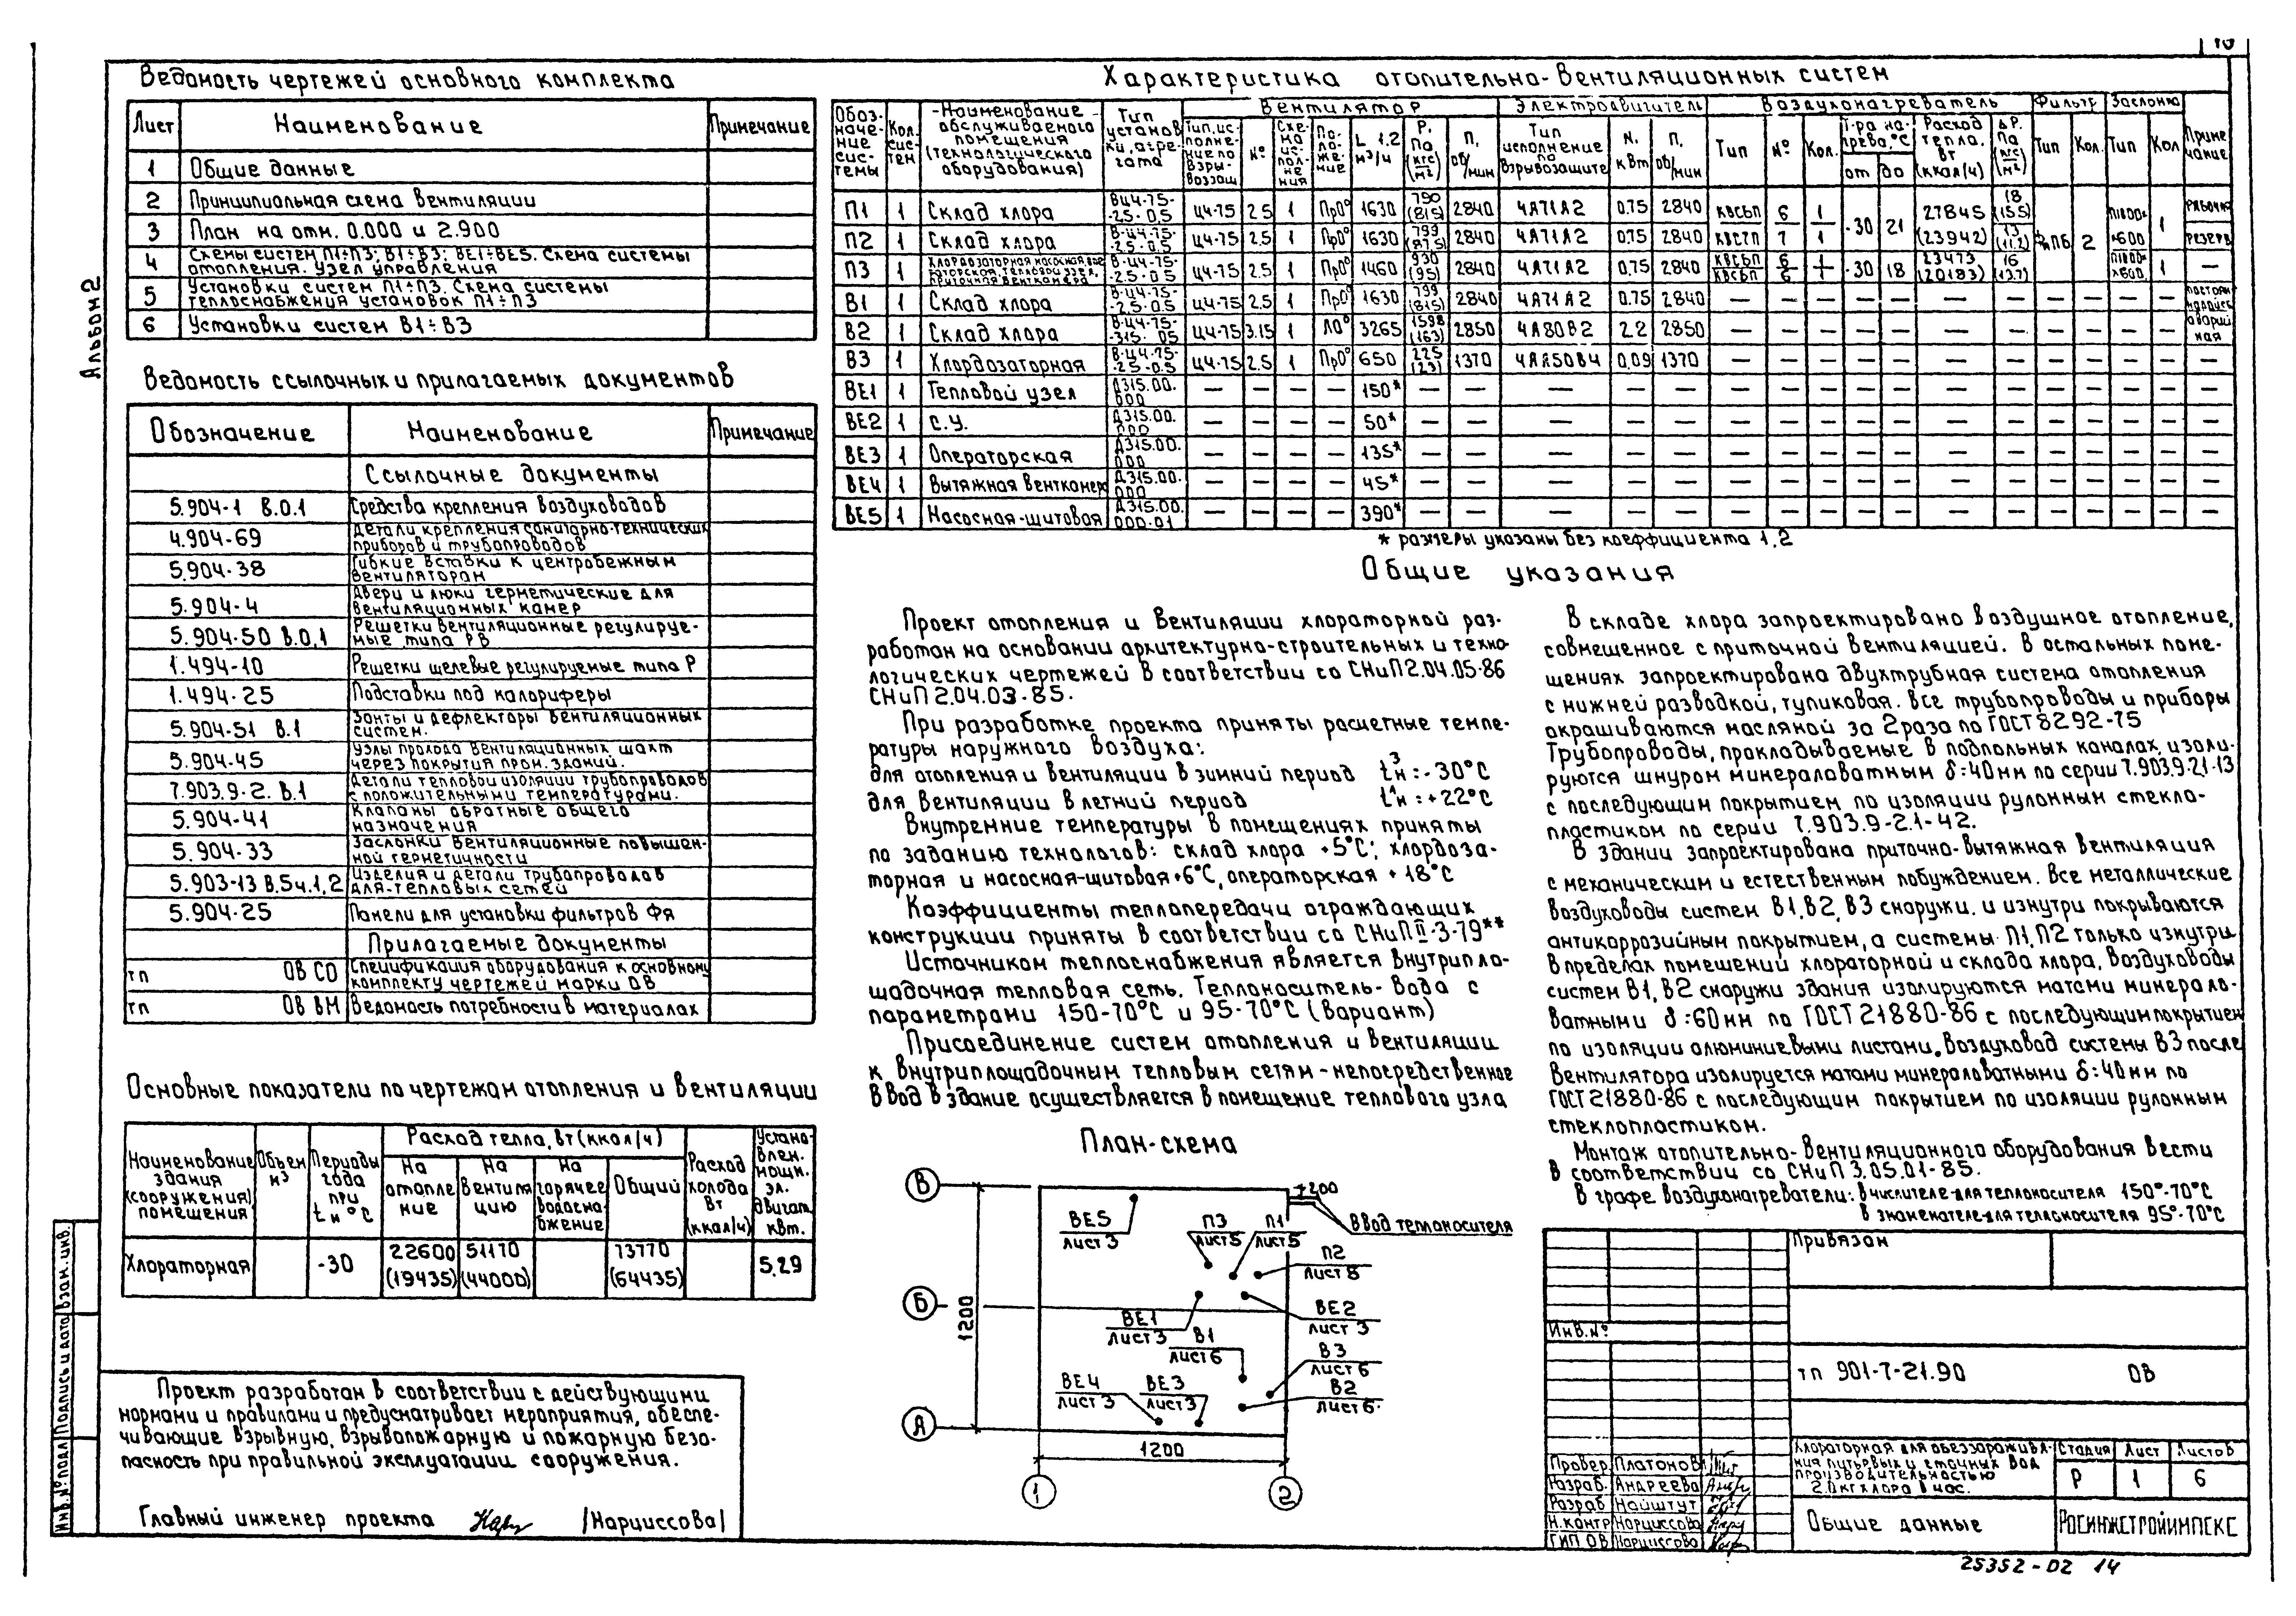 Альбом 2
Ведомость чертежей основного комплекта
Лист Наименование Примечание
1 Общие данные
2 Принципиальная схема вентиляции
3 План на отм. 0.000 и 2.900
4 Схемы систем П1÷П3; В1÷В3; ВЕ1÷ВЕ5. Схема системы отопления. Узел управления
5 Установки систем П1÷П3. Схема системы теплоснабжения установок П1÷П3
6 Установки систем В1÷В3
Ведомость ссылочных и прилагаемых документов
Обозначение Наименование Примечание
Ссылочные документы
5.904-1 В.0.1 Средства крепления воздуховодов
4.904-69 Детали крепления санитарно-технических приборов и трубопроводов
5.904-38 Гибкие вставки к центробежным вентиляторам
5.904-4 Двери и люки герметические для вентиляционных камер
5.904-50 В.0,1 Решетки вентиляционные регулируемые типа РВ
1.494-10 Решетки щелевые регулируемые типа Р
1.494-25 Подставки под калориферы
5.904-51 В.1 Зонты и дефлекторы вентиляционных систем.
5.904-45 Узлы прохода вентиляционных шахт через покрытия пром. зданий.
7.903.9-2. В.1 Детали тепловой изоляции трубопроводов с положительными температурами.
5.904-41 Клапаны обратные общего назначения
5.904-33 Заслонки вентиляционные повышенной герметичности
5.903-13 В.5ч.1,2 Изделия и детали трубопроводов для тепловых сетей
5.904-25 Панели для установки фильтров Фя
Прилагаемые документы
тп ОВ СО Спецификация оборудования к основному комплекту чертежей марки ОВ
тп ОВ ВМ Ведомость потребности в материалах
Основные показатели по чертежам отопления и вентиляции
Наименование здания (сооружения) помещения Объем м³ Периоды года при tн °С Расход тепла, вт (ккал/ч) Расход холода вт (ккал/ч) Установлен. мощн. эл. двигат. квт.
На отопление На вентиляцию На горячее водоснабжение Общий
Хлораторная -30 22600 (19435) 51170 (44000) 73770 (64435) 5,29
Проект разработан в соответствии с действующими
нормами и правилами и предусматривает мероприятия, обеспе-
чивающие взрывную, взрывопожарную и пожарную безо-
пасность при правильной эксплуатации сооружения.
Главный инженер проекта /Нарциссова/
Характеристика отопительно-вентиляционных систем
Обозначение системы Кол. систем Наименование обслуживаемого помещения (технологического оборудования) Тип установки, агрегата Вентилятор Электродвигатель Воздухонагреватель Фильтр Заслонка Примечание
Тип, исполнение по взрывозащ № Схема исполнения Положение L 1.2 м³/ч Р, Па (кгс/м²) п, об/мин Тип исполнение по взрывозащите N, кВт п, об/мин Тип № Кол. Т-ра нагрева, °С от до Расход тепла, вт (ккал/ч) ΔР, Па (кгс/м²) Тип Кол. Тип Кол
П1 1 Склад хлора ВЦ4-75-2.5-0.5 Ц4-75 2.5 1 Пр0° 1630 790 (81.5) 2840 4А71А2 0.75 2840 КВСБП 6 1 -30 21 27845 (23942) 18 (15.5) ФяПБ 2 П1000×600 1 рабочая
П2 1 Склад хлора В-Ц4-75-2.5-0.5 Ц4-75 2.5 1 Пр0° 1630 799 (87.5) 2840 4А71А2 0.75 2840 КВС7П 7 1 13 (11.2) резерв
П3 1 Хлордозаторная, насосная, операторская, тепловой узел, приточная венткамера В-Ц4-75-2.5-0.5 Ц4-75 2.5 1 Пр0° 1460 930 (95) 2840 4А71А2 0.75 2840 КВСБП КВСБП 6/6 1/1 -30 18 23473 (20183) 16 (13.7) П1000×600 1 —
В1 1 Склад хлора В-Ц4-75-2.5-0.5 Ц4-75 2.5 1 Пр0° 1630 799 (81.5) 2840 4А71А2 0.75 2840 — — — — — — — — — — —
В2 1 Склад хлора В-Ц4-75-315-05 Ц4-75 3.15 1 Л0° 3265 1598 (163) 2850 4А80В2 2.2 2850 — — — — — — — — — — — аварийная
В3 1 Хлордозаторная В-Ц4-75-2.5-0.5 Ц4-75 2.5 1 Пр0° 650 225 (23) 1370 4АА50В4 0.09 1370 — — — — — — — — — — — —
ВЕ1 1 Тепловой узел Д315.00.000 — — — — 150* — — — — — — — — — — — — — — — — —
ВЕ2 1 С.У. Д315.00.000 — — — — 50* — — — — — — — — — — — — — — — — —
ВЕ3 1 Операторская Д315.00.000 — — — — 135* — — — — — — — — — — — — — — — — —
ВЕ4 1 Вытяжная венткамера Д315.00.000 — — — — 45* — — — — — — — — — — — — — — — — —
ВЕ5 1 Насосная-щитовая Д315.00.000-01 — — — — 390* — — — — — — — — — — — — — — — — —
* размеры указаны без коеффициента 1,2
Общие указания
Проект отопления и вентиляции хлораторной раз-
работан на основании архитектурно-строительных и техно-
логических чертежей в соответствии со СНиП 2.04.05-86
СНиП 2.04.03-85.
При разработке проекта приняты расчетные темпе-
ратуры наружного воздуха:
для отопления и вентиляции в зимний период tн³ = -30°С
для вентиляции в летний период tн = +22°С
Внутренние температуры в помещениях приняты
по заданию технологов: склад хлора +5°С; хлордоза-
торная и насосная-щитовая +6°С, операторская +18°С
Коэффициенты теплопередачи ограждающих
конструкции приняты в соответствии со СНиП II-3-79**
Источником теплоснабжения является внутрипло-
щадочная тепловая сеть. Теплоноситель-вода с
параметрами 150-70°С и 95-70°С (вариант)
Присоединение систем отопления и вентиляции
к внутриплощадочным тепловым сетям-непосредственное
Ввод в здание осуществляется в помещение теплового узла
В складе хлора запроектировано воздушное отопление,
совмещенное с приточной вентиляцией. В остальных поме-
щениях запроектирована двухтрубная система отопления
с нижней разводкой, тупиковая. Все трубопроводы и приборы
окрашиваются масляной за 2 раза по ГОСТ 8292-75
Трубопроводы, прокладываемые в подпольных каналах, изоли-
руются шнуром минераловатным δ=40мм по серии 7.903.9-2.1-13
с последующим покрытием по изоляции рулонным стекло-
пластиком по серии 7.903.9-2.1-42.
В здании запроектирована приточно-вытяжная вентиляция
с механическим и естественным побуждением. Все металлические
воздуховоды систем В1, В2, В3 снаружи. и изнутри покрываются
антикоррозийным покрытием, а системы П1, П2 только изнутри
в пределах помещений хлораторной и склада хлора. Воздуховоды
систем В1, В2 снаружи здания изолируются матами минерало-
ватными δ=60мм по ГОСТ 21880-86 с последующим покрытием
по изоляции алюминиевыми листами. Воздуховод системы В3 после
вентилятора изолируется матами минераловатными δ=40мм по
ГОСТ 21880-86 с последующим покрытием по изоляции рулонным
стеклопластиком.
Монтаж отопительно-вентиляционного оборудования вести
в соответствии со СНиП 3.05.01-85.
В графе воздухонагреватели: в числителе-для теплоносителя 150°-70°С
в знаменателе-для теплоносителя 95°-70°С
План-схема
В Б А 1 2
1200
1200
1200
Ввод теплоносителя
ВЕ5 лист 3
П3 лист 5
П1 лист 5
П2 лист 8
ВЕ1 лист 3
ВЕ2 лист 3
В1 лист 6
В3 лист 6
В2 лист 6
ВЕ4 лист 3
ВЕ3 лист 3
Привязан
Инв. №
тп 901-7-21.90 ОВ
Провер. Платонов
Разраб. Андреева
Разраб Найштут
Н.контр Нарциссова
ГИП ОВ Нарциссова
Хлораторная для обеззаражива-
ния питьевых и сточных вод
производительностью
2.0 кг хлора в час.
Стадия Лист Листов
Р 1 6
Общие данные
РОСИНЖСТРОЙИМПЕКС
25352-02 14
Инв. № подл Подпись и дата Взам. инв.